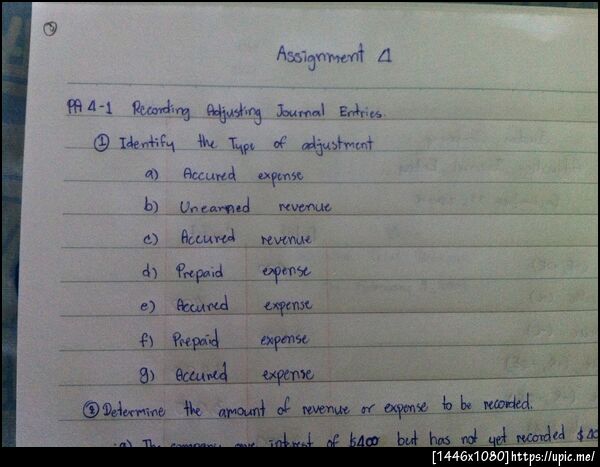 2
Assignment 4
PA 4-1 Recording Adjusting Journal Entries.
① Identify the Type of adjustment
a) Accured expense
b) Unearned revenue
c) Accured revenue
d) Prepaid expense
e) Accured expense
f) Prepaid expense
g) Accured expense
② Determine the amount of revenue or expense to be recorded.
a) The company owe interest of $400 but has not yet recorded
[1446x1080]https://upic.me/